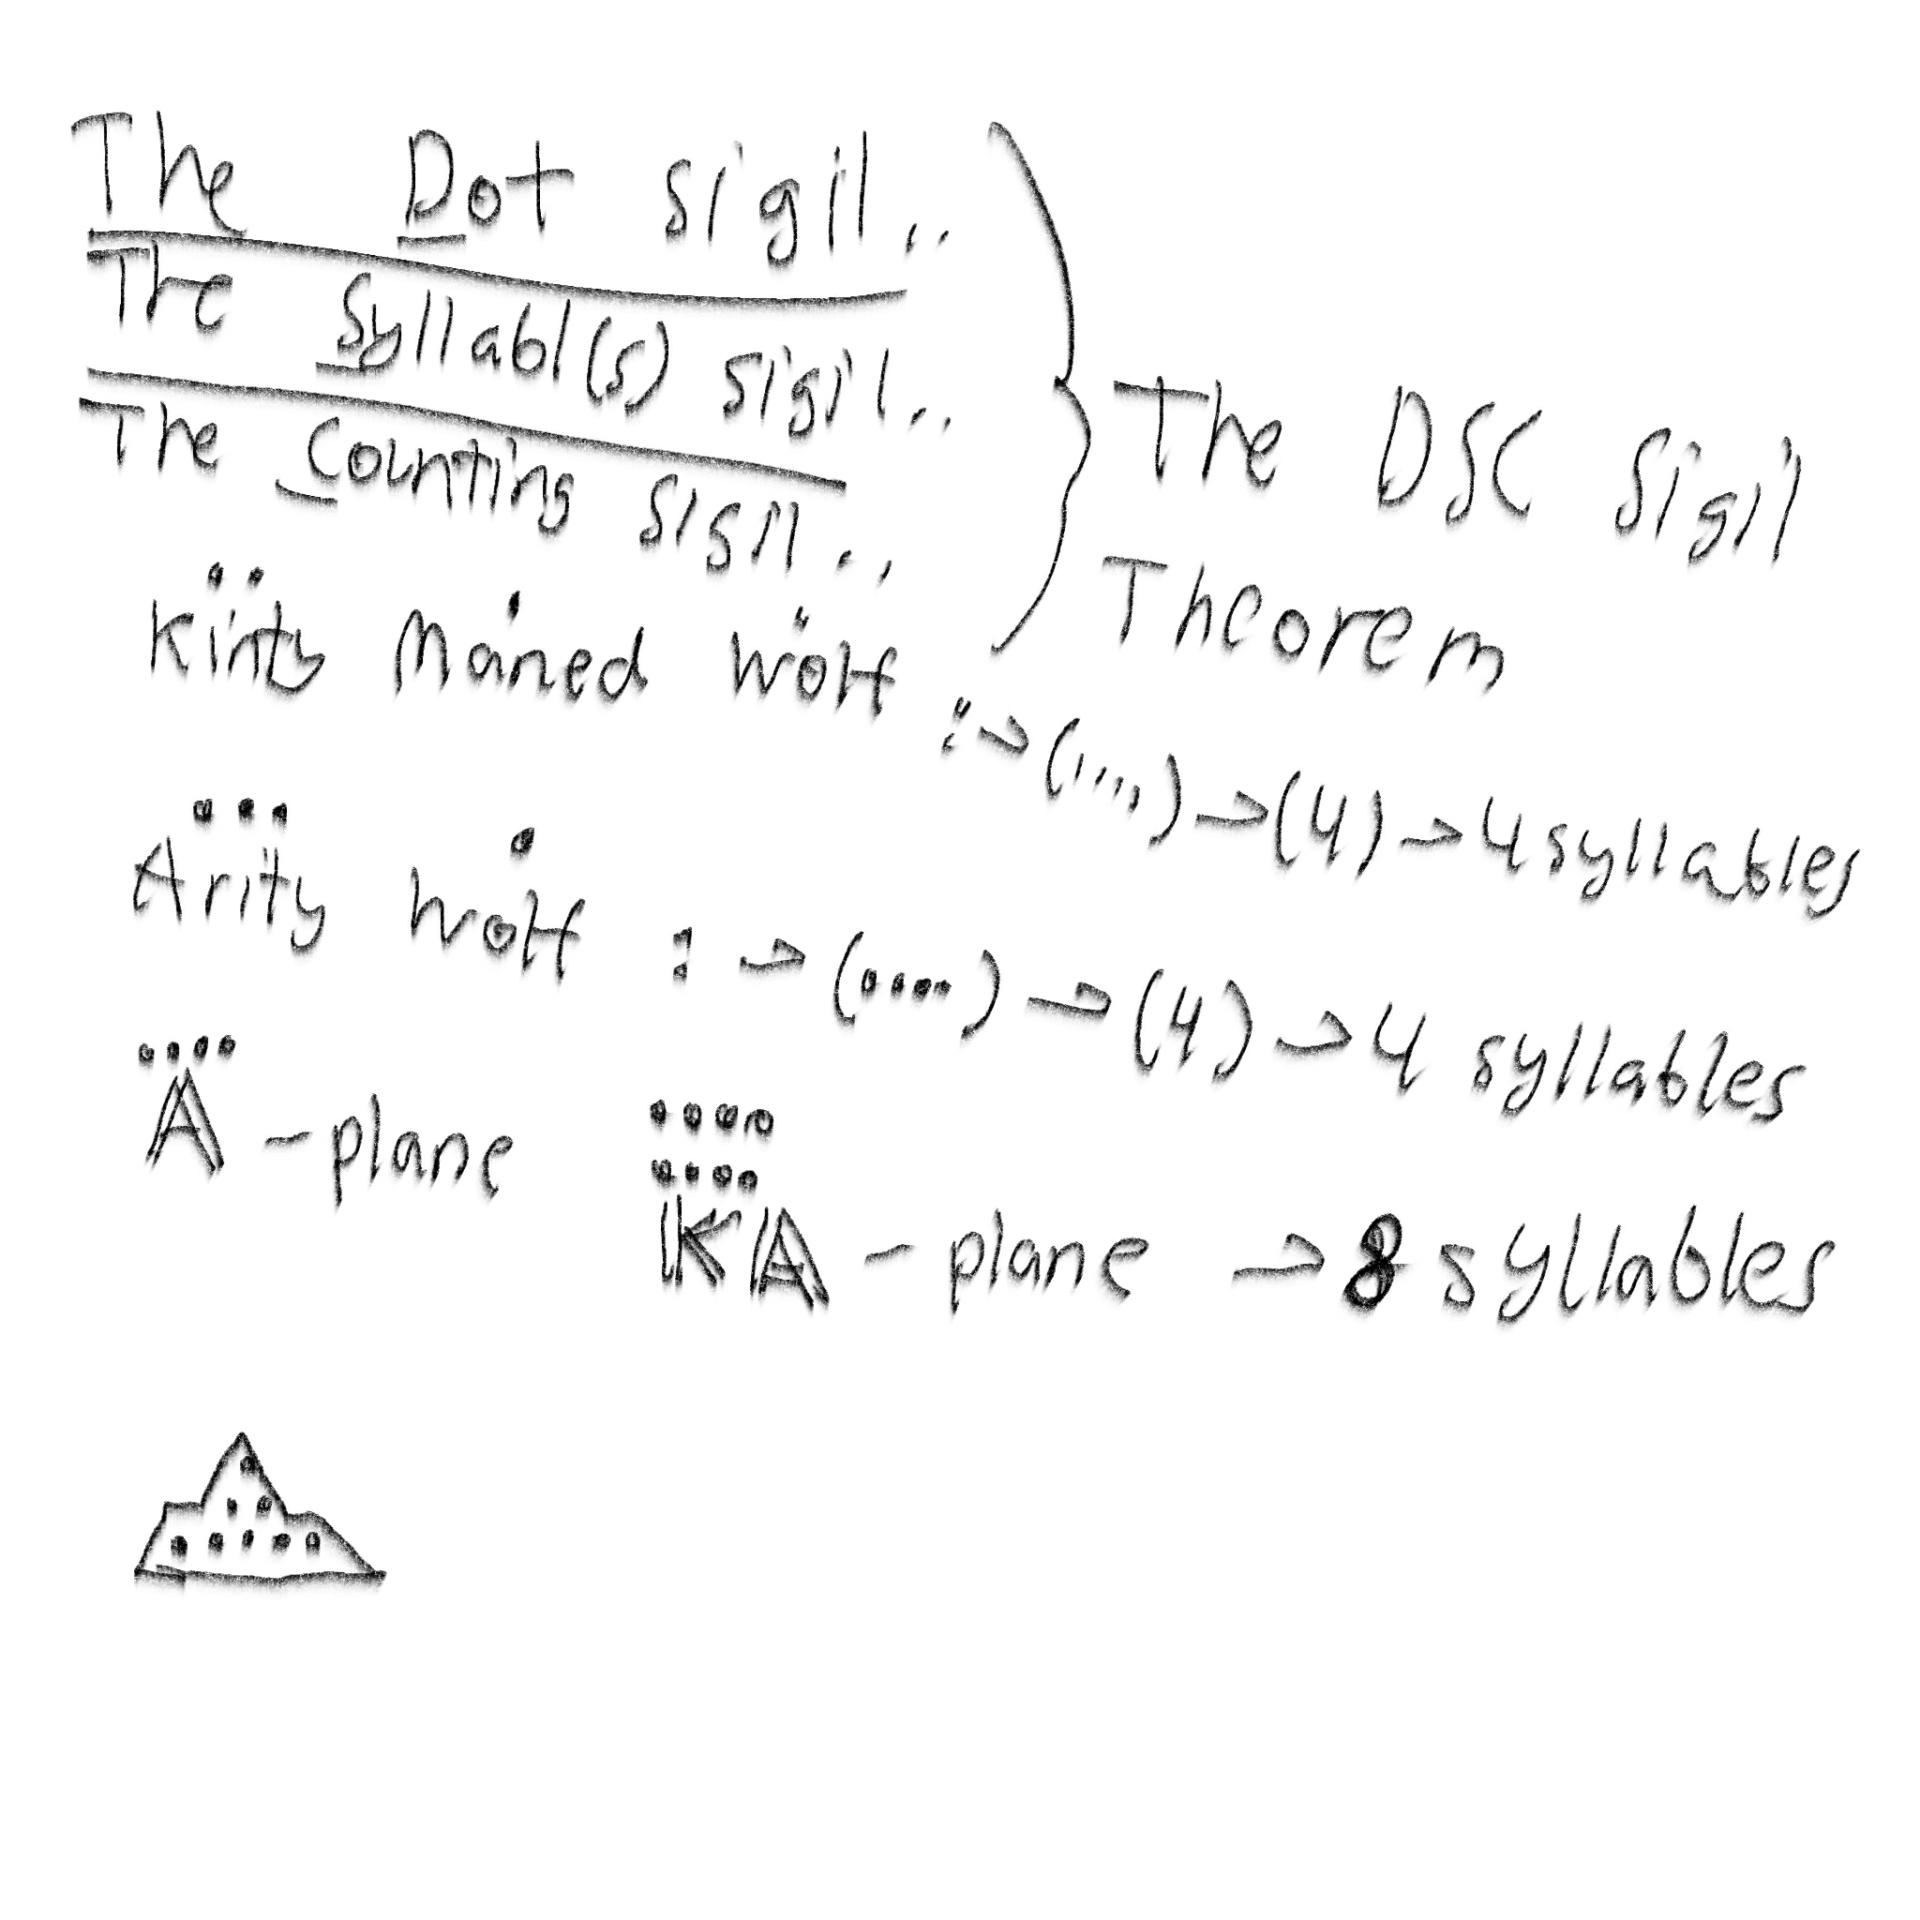 The Dot Sigil..
The Syllabl(s) Sigil..
The Counting Sigil..
The DSC Sigil
Theorem
Kinty Maned Wolf :→(....)→(4)→4 syllables
Arity Wolf :→(....)→(4)→4 syllables
𝔸-plane 𝕂𝔸-plane →8 syllables